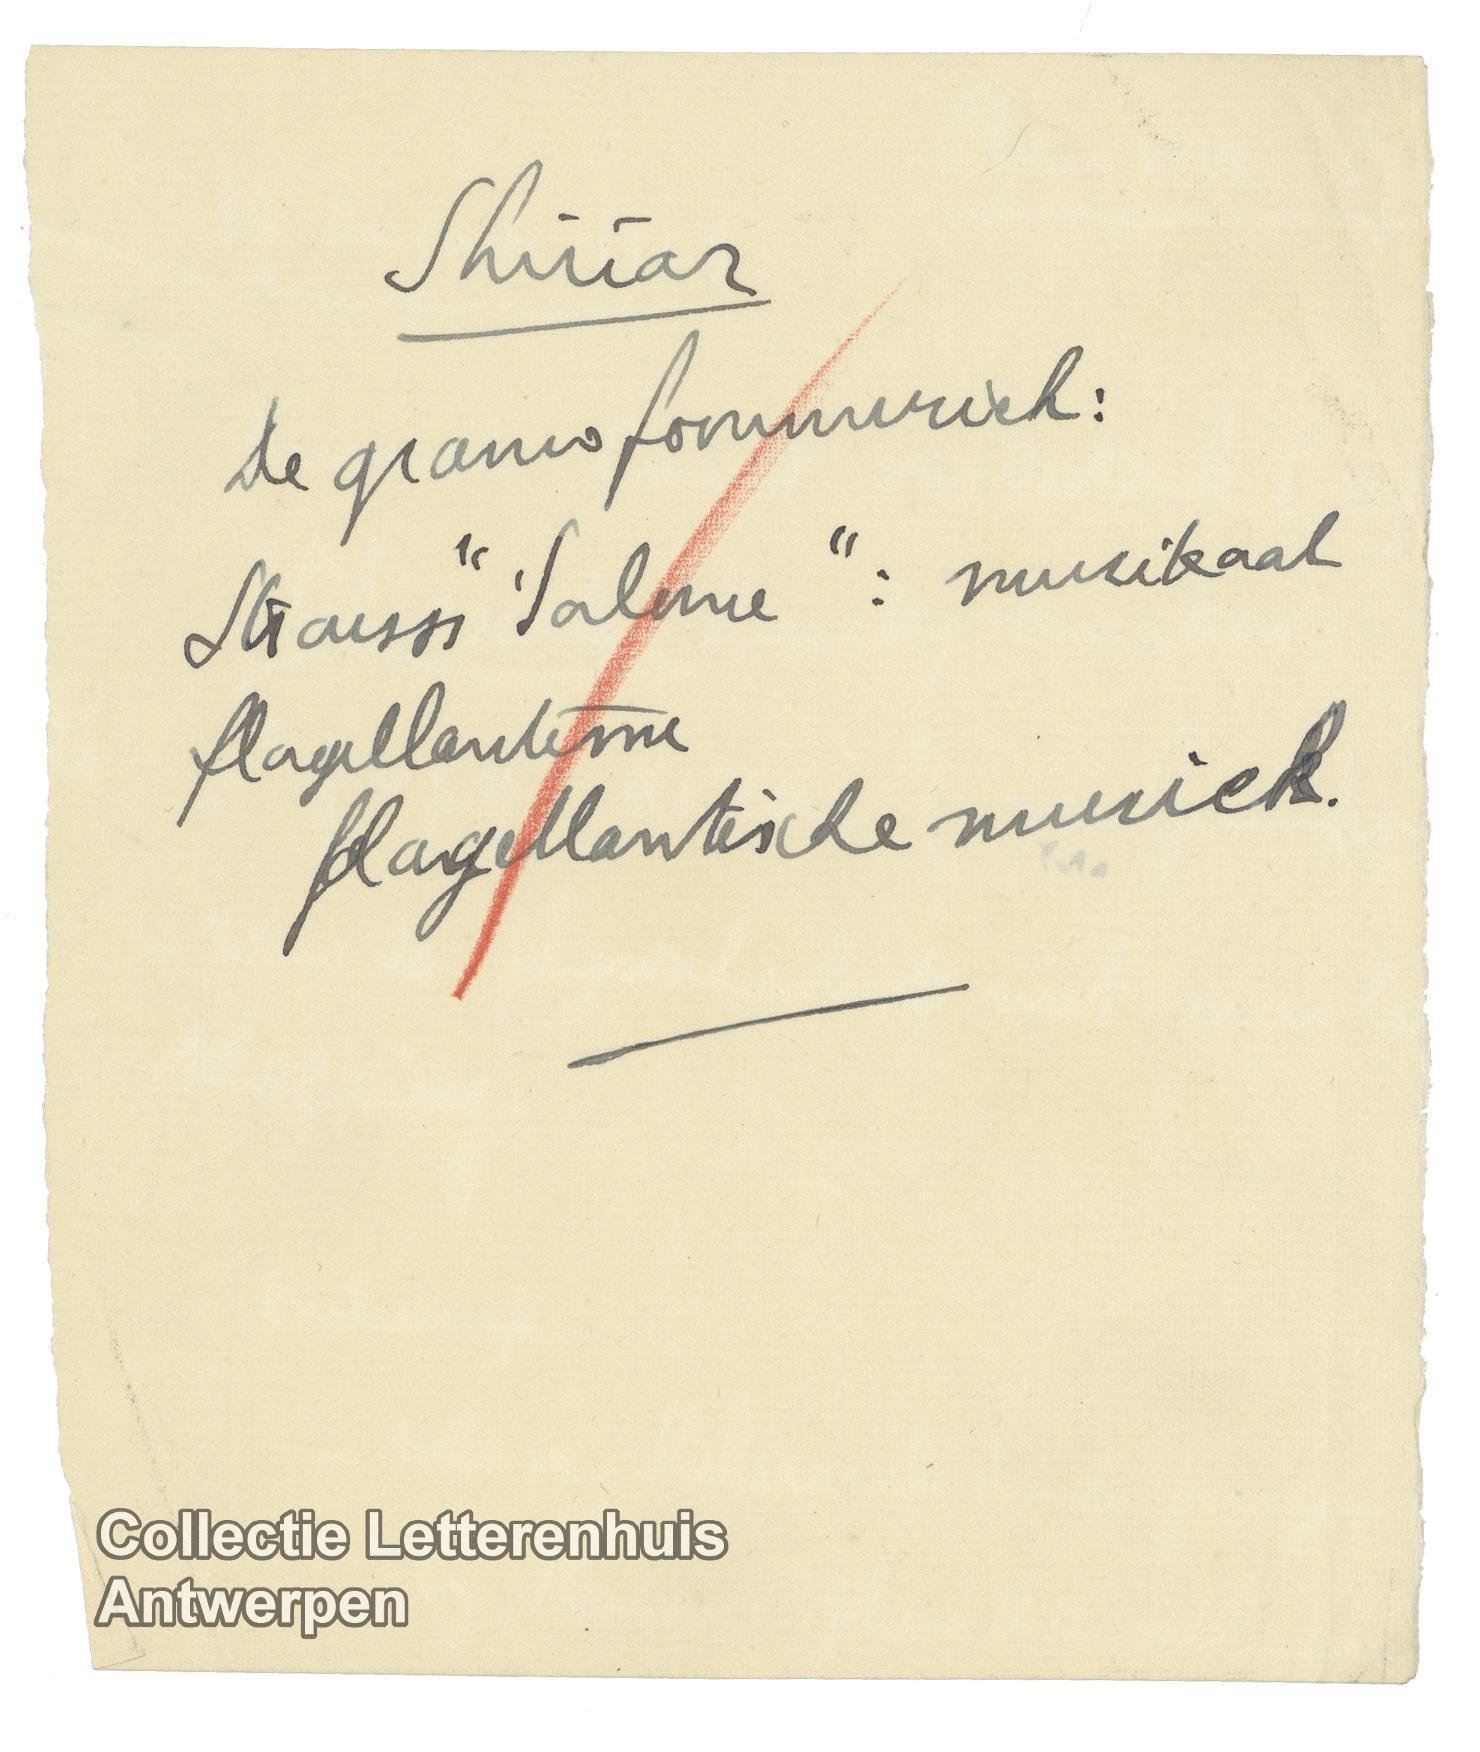 Shiriar
De gramofoonmuziek:
Strauss' "Salome": muzikaal
flagellantisme
flagellantische muziek.
Collectie Letterenhuis
Antwerpen